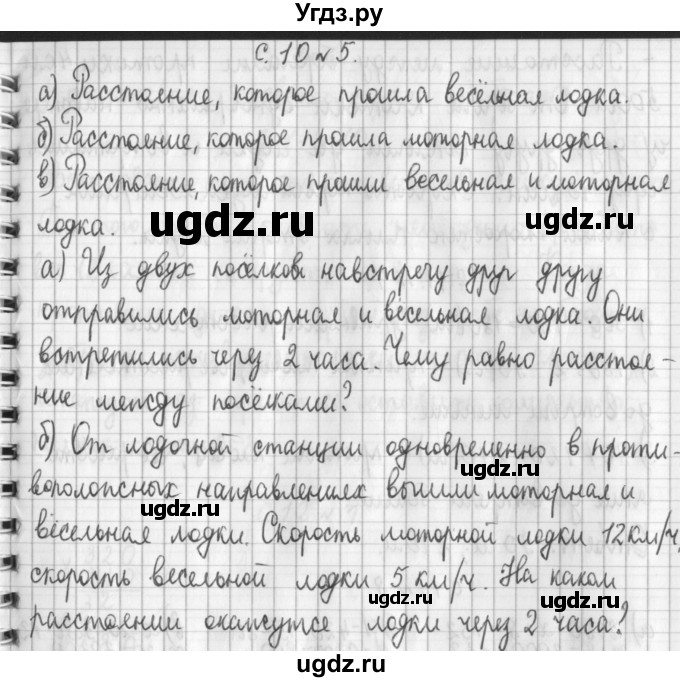 Угдз.ру
с. 10 № 5.
а) Расстояние, которое прошла весёльная лодка.
б) Расстояние, которое прошла моторная лодка.
в) Расстояние, которое прошли весельная и моторная
лодка.
ugdz.ru ugdz.ru
а) Из двух посёлков навстречу друг другу
отправились моторная и весельная лодка. Они
встретились через 2 часа. Чему равно расстоя-
ние между посёлками?
б) От лодочной станции одновременно в проти-
ugdz.ru
воположных направлениях вышли моторная и
весельная лодки. Скорость моторной лодки 12 км/ч,
скорость весельной лодки 5 км/ч. На каком
ugdz.ru ugdz.ru
расстоянии окажутся лодки через 2 часа?
ugdz.ru